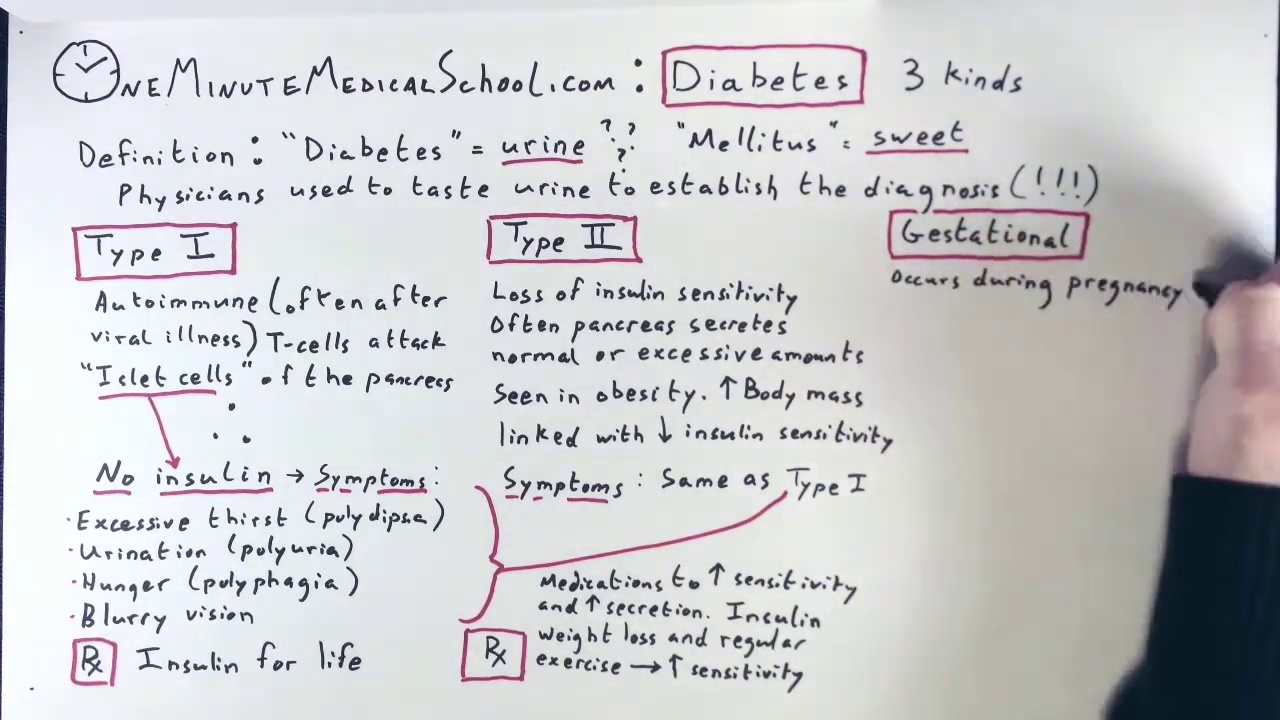 OneMinuteMedicalSchool.com : Diabetes 3 kinds
Definition : "Diabetes" = urine ??? "Mellitus" = sweet
Physicians used to taste urine to establish the diagnosis (!!!)
Type I
Autoimmune (often after
viral illness) T-cells attack
"Islet cells" of the pancreas
No insulin → Symptoms :
· Excessive thirst (polydipsia)
· Urination (polyuria)
· Hunger (polyphagia)
· Blurry vision
Rx Insulin for life
Type II
Loss of insulin sensitivity
Often pancreas secretes
normal or excessive amounts
Seen in obesity. ↑ Body mass
linked with ↓ insulin sensitivity
Symptoms : Same as Type I
Rx
Medications to ↑ sensitivity
and ↑ secretion. Insulin
weight loss and regular
exercise → ↑ sensitivity
Gestational
Occurs during pregnancy